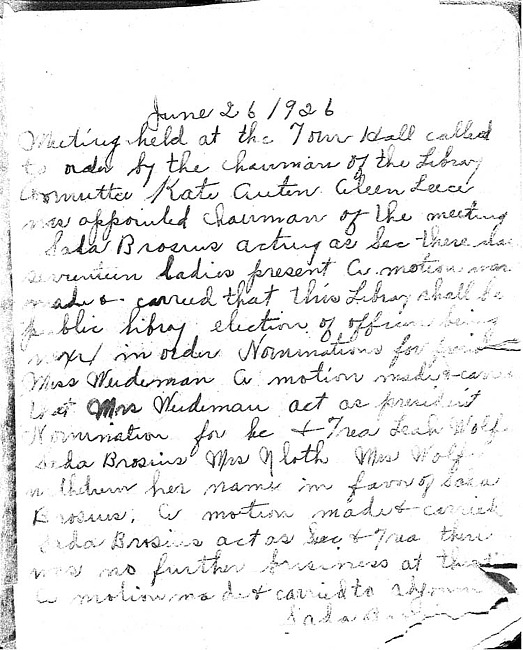 June 26 1926
Meeting held at the Town Hall called
to order by the chairman of the Library
Committee Kate Auten Aleen
was appointed chairman of the meeting
Sada Brosius acting as Sec there
seventeen ladies present A motion was
made & carried that this Library shall be
public library election of officers being
next in order Nominations for
Miss Weideman A motion made & carried
that Mrs Weideman act as president
Nomination for Sec & Trea Leah Wolf
Sada Brosius Mrs Wolf
withdrew her name in favor of Sada
Brosius. A motion made & carried
Sada Brosius act as Sec & Trea there
was no further business at that
A motion made & carried to
Sada